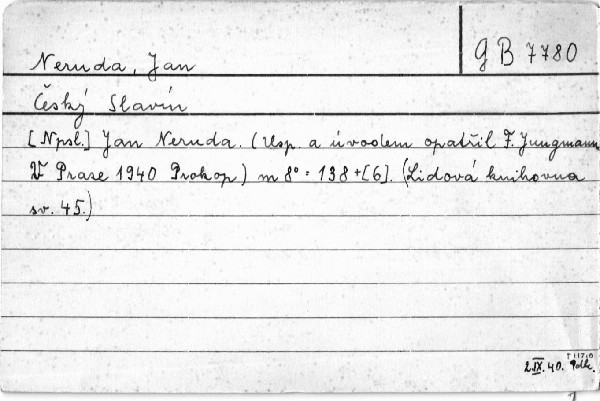 Neruda, Jan
g B 7780
Český Slavín
[Npsl.] Jan Neruda. (Usp. a úvodem opatřil F. Jungmann.
V Praze 1940 Prokop) m 8° = 138+[6]. (Lidová knihovna
sv. 45.)
2.IX.40.